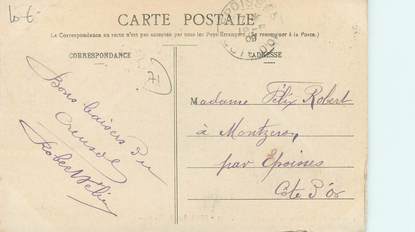 CARTE POSTALE
(La Correspondance au recto n'est pas acceptée par tous les Pays Etrangers. Se renseigner à la Poste.)
CORRESPONDANCE
ADRESSE
Bons baisers du
Creusot
Madame Félix Robert
à Montzeron
par Epoisses
Côte d'Or